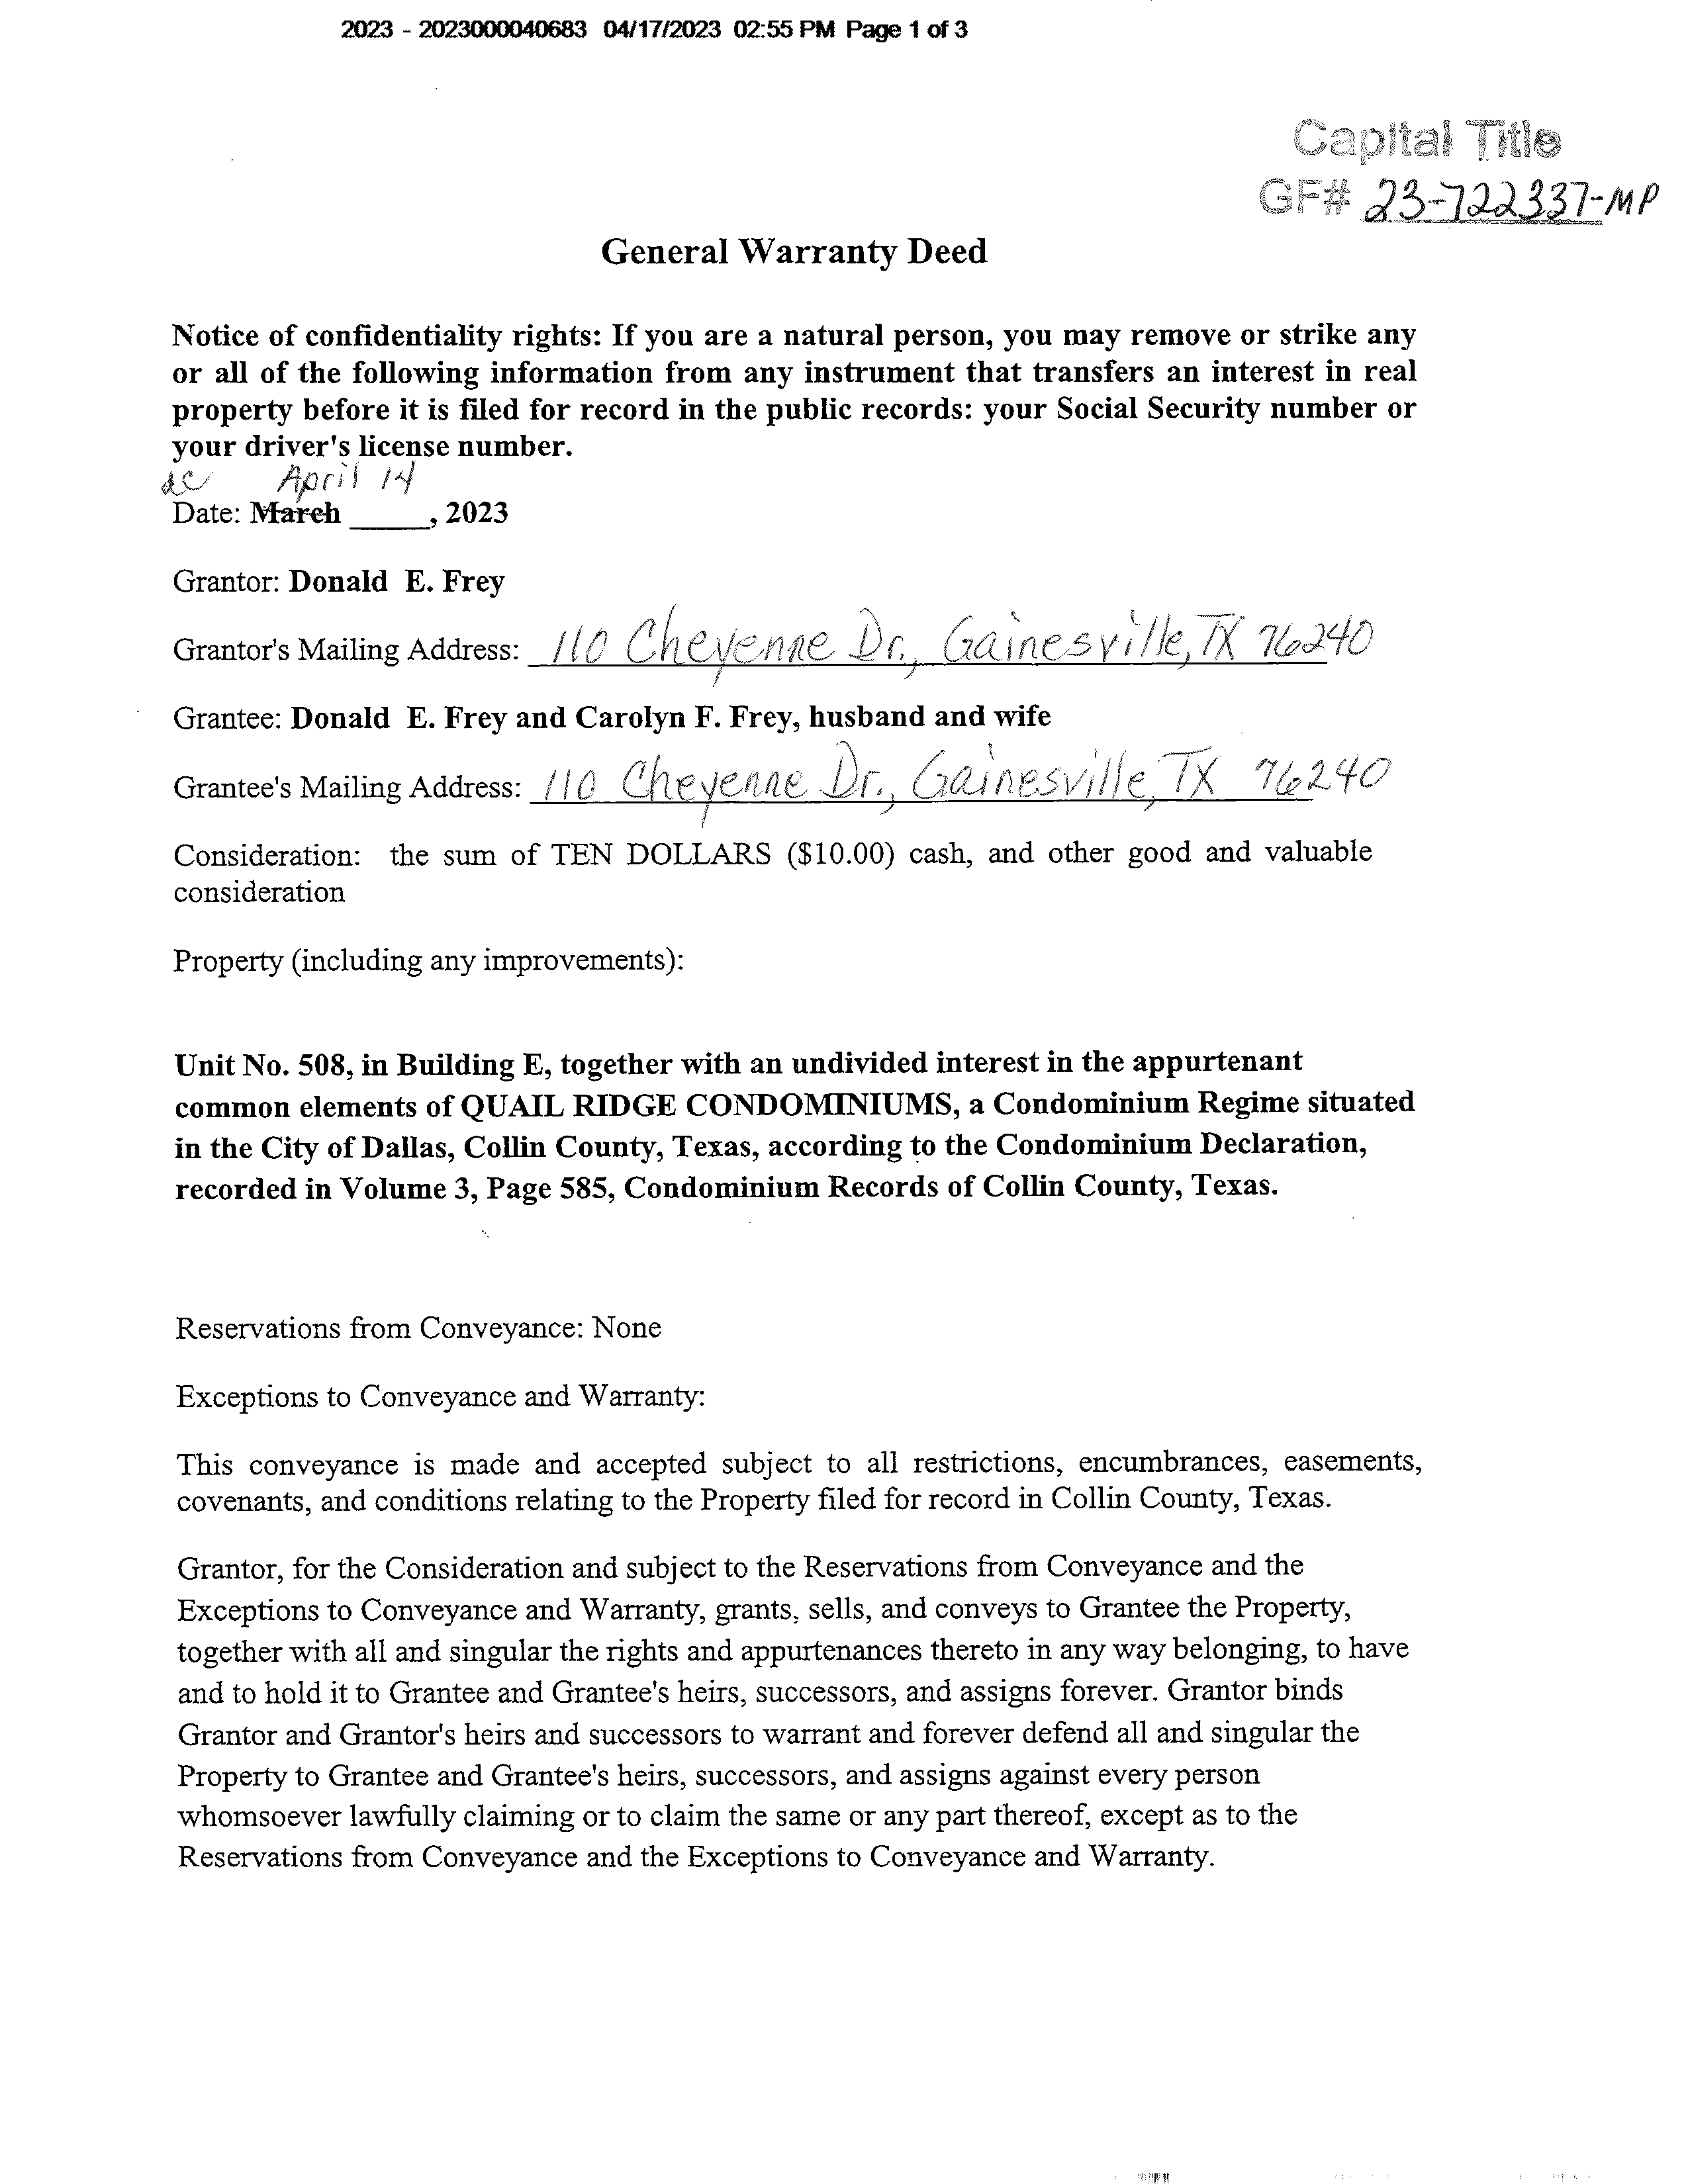 2023 - 2023000040683 04/17/2023 02:55 PM Page 1 of 3
Capital Title
GF# 23-722337-MP
General Warranty Deed
Notice of confidentiality rights: If you are a natural person, you may remove or strike any
or all of the following information from any instrument that transfers an interest in real
property before it is filed for record in the public records: your Social Security number or
your driver's license number.
April 14
Date: March _____, 2023
Grantor: Donald E. Frey
Grantor's Mailing Address: 110 Cheyenne Dr., Gainesville, TX 76240
Grantee: Donald E. Frey and Carolyn F. Frey, husband and wife
Grantee's Mailing Address: 110 Cheyenne Dr., Gainesville, TX 76240
Consideration: the sum of TEN DOLLARS ($10.00) cash, and other good and valuable
consideration
Property (including any improvements):
Unit No. 508, in Building E, together with an undivided interest in the appurtenant
common elements of QUAIL RIDGE CONDOMINIUMS, a Condominium Regime situated
in the City of Dallas, Collin County, Texas, according to the Condominium Declaration,
recorded in Volume 3, Page 585, Condominium Records of Collin County, Texas.
Reservations from Conveyance: None
Exceptions to Conveyance and Warranty:
This conveyance is made and accepted subject to all restrictions, encumbrances, easements,
covenants, and conditions relating to the Property filed for record in Collin County, Texas.
Grantor, for the Consideration and subject to the Reservations from Conveyance and the
Exceptions to Conveyance and Warranty, grants, sells, and conveys to Grantee the Property,
together with all and singular the rights and appurtenances thereto in any way belonging, to have
and to hold it to Grantee and Grantee's heirs, successors, and assigns forever. Grantor binds
Grantor and Grantor's heirs and successors to warrant and forever defend all and singular the
Property to Grantee and Grantee's heirs, successors, and assigns against every person
whomsoever lawfully claiming or to claim the same or any part thereof, except as to the
Reservations from Conveyance and the Exceptions to Conveyance and Warranty.